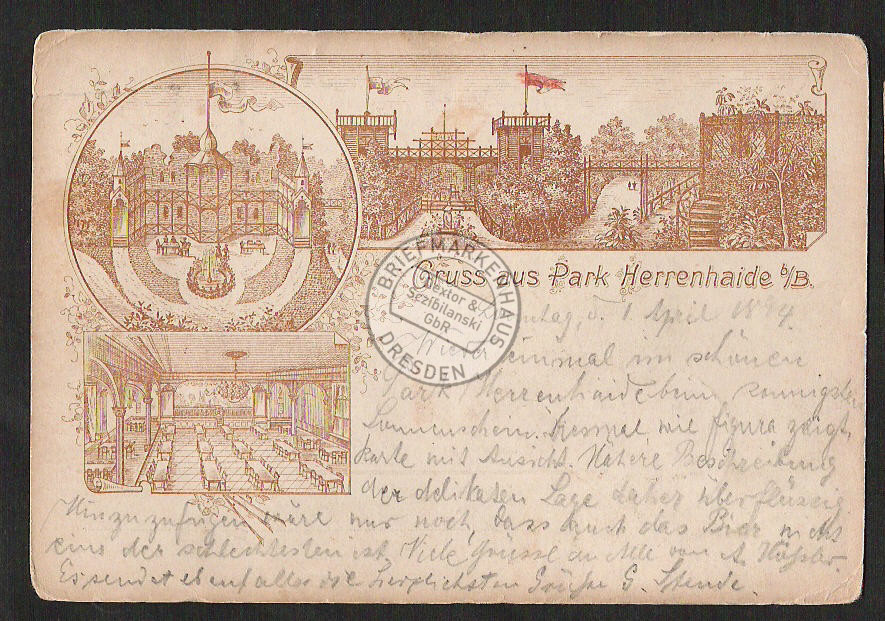 Gruss aus Park Herrenhaide b/B.
BRIEFMARKENHAUS
Rextor &
Sczibilanski
GbR
DRESDEN
d. 1 April 1894.
Wieder einmal im schönen
Park Herrenhaide beim sonnigsten
Sonnenschein. wie figura zeigt,
Karte mit Ansicht. Nähere Beschreibung
der delikaten Lage daher überflüssig
Hinzuzufügen wäre nur noch, dass auch das Bier nicht
eins der schlechtesten ist. Viele Grüsse an Alle von A.
Es sendet ebenfalls die herzlichsten Grüße G.